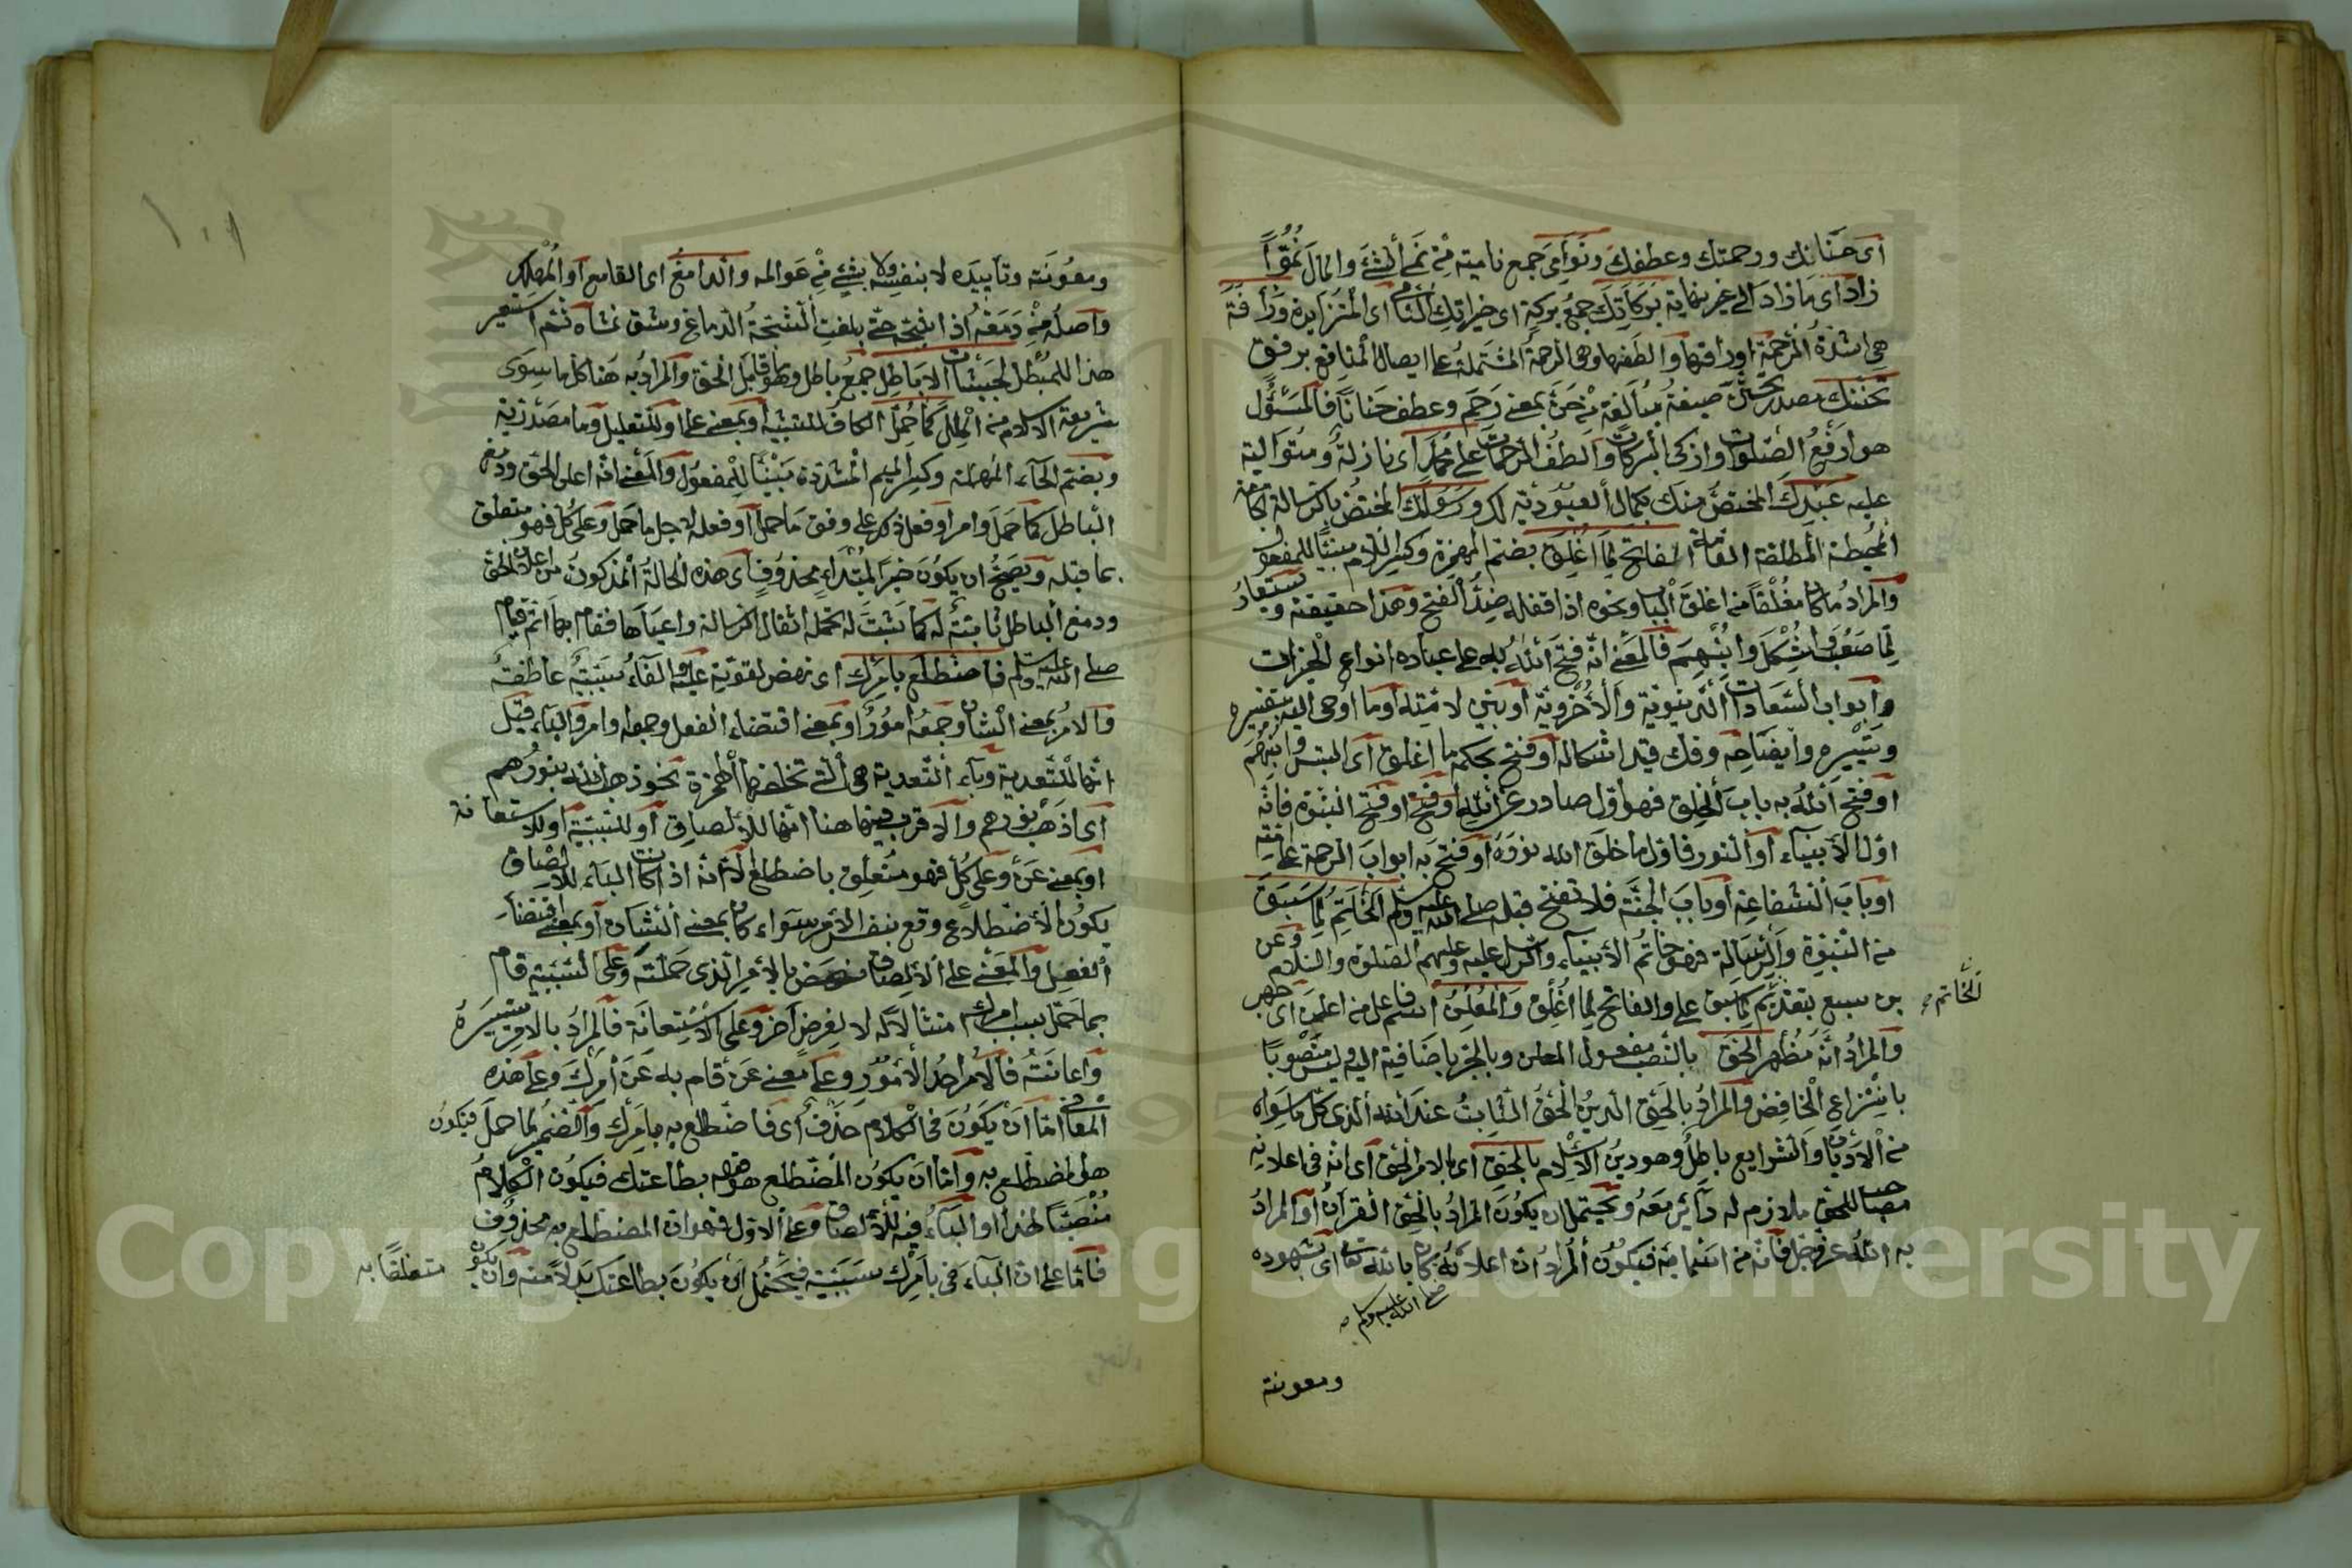 أى حَنَانِك ورحمتك وعطفك ونَوَامِىَ جمع نامية مِنْ نَمَى الشئ والمال نُمُوًّا
زاد اى ما زاد الى غير نهاية بَرَكَاتِكَ جمعُ بركة اى خيراتك التام اى المتزايدة وَرَأفَةَ
هى اشدّة الرحمة اورافتها والطفها وهى الرحمة المشتملة على ايصال المنافع برفق
تحننك مصدر تحنّن صيغة مبالغة من حَنّ بمعنى رَحِمَ وعطف حَنَانًا فالمسؤُل
هو ارفعُ الصلوات وازكى البركات والطف الرحمات على محمد اى نازلة ومتوالية
عليه عَبْدِكَ المختص منك بكمال العبوديّة لك ورَسُولِكَ المختص بالرسالة الجامعة
المحيطة المطلقة العامة الفاتح لِمَا اُغْلِقَ بضم الهمزة وكسر اللام مبنيًّا للمفعول
والمرادُ ما كان مُغْلَقًا من اغلق الباب ونحوه اذا قفله ضِدُّ الفتح وهذا حقيقته ويستعار
لِمَا صَعُبَ واشكل وانبهم فالمعنى انّه فتح الله به على عباده انواع الخيرات
وابواب السعادات الدنيوية والأخروية او بيّن لامّته اوما اوحى اليه بتفسيره
وتيسيره وايضاحه وفك قيد اشكاله او فتح بحكمه ما اغلق اى التبس وانبهم
او فتح الله به باب الخلق فهو اول صادر عن الله او فتح او فتح النبوّة فانّه
اوّل الأنبياء او النور فاول ما خلق الله نوره او فتح به ابواب الرحمة على امّته
او باب الشفاعة او باب الجنّة فلا تفتح قبله صلى الله عليه وسلم الخَاتِمِ لِمَا سَبَقَ
من النبوّة والرسالة فهو خاتم الأنبياء والرسل عليه وعليهم الصلوة والسلام وعن
الخاتم صح
بن سبع بتقديم لما سبق على والفاتح لِمَا اُغْلِقَ وَالْمُعْلِنِ اسم فاعل من اعلن اى جهر
والمرادُ انّه مُظْهِر الحَقَّ بالنصب مفعول المعلن وبالجرّ باضافته اليه وليس منصوبًا
بانتزاع الخافض والمراد بالحق الدينُ الحَقُّ الثابتُ عند الله الذى كلّ ما سواه
من الأديان والشرايع باطل وهو دين الاسلام بالحق اى بالامر الحق اى انّه فى اعلانه
مصاحب للحق ملازم له دائر معه ويحتمل ان يكون المرادُ بالحق القرآن او المرادُ
به الله عز وجل فانّه من اسمائه فيكون المراد ان اعلانه كان بالله تعالى اى بشهوده
صلى الله عليه وسلم صح
ومعونته
١٠١
ومعُونته وتأييده لا بنفسه ولا بشئ مِنْ عوالمه والدامغ اى القامع او المُهلك
واصلُه مِنْ دَمَغَهُ اذا شجّه حتى بلغت الشجّةُ الدماغ وشقّ غشاه ثم استعير
هنا للمبطل لجَيْشَات الأباطِل جمعُ باطل وهو مقابل الحق والمراد به هنا كل ما سوى
شريعة الاسلام من الملل كَمَا حُمِّلَ الكاف للتشبيه او بمعنى على او للتعليل وما مصدرية
وبضم الحاء المهملة وكسر الميم المشددة مَبْنِيًّا للمفعول والمعنى انّه اعلن الحق ودمغ
الباطل كما حمل وامر او فعل ذلك على وفق ما حمل او فعله لاجل ما حمل وعلى كل فهو متعلق
بما قبله ويصح ان يكون خبرًا لمبتدأ محذوف اى هذه الحالة المذكورة من اعلان الحق
ودمغ الباطل ثابتة له كما ثبت له تحمله اثقال الرسالة واعبآءها فقام بها اتم قيام
صلى الله عليه وسلم فاضطلع بأمرك اى نهض لقوّته عليه والفاء سببيّة عاطفة
والامر بمعنى الشان وجمعه امورٌ او بمعنى اقتضاء الفعل وجمعه اوامر والباء قيل
انها للتعدية وباء التعدية هى التى تخلفها الهمزة نحو ذهب الله بنورهم
اى اذهب نورهم والاقرب فيها هنا انها للألصاق او للسببيّة او للاستعانة
او بمعنى عَن وعلى كُل فهو متعلق باضطلع لا انّه اذا كانت الباء للألصاق
يكون الاضطلاع وقع بنفس الأمر سواء كان بمعنى الشان او بمعنى اقتضاء
الفعل والمعنى على الألصاق نهض بالأمر الذى حملته وعلى السببيّة قام
بما حمل بسبب امرك امتثالا له لا لغرض آخر وعلى الاستعانة فالمراد بالامر تيسيره
واعانته فالامر احد الأمور وعلى معنى عن قام به عن أمرك وعلى هذه
المعانى امّا ان يكون فى الكلام حذف اى فاضطلع به بأمرك والضمير لما حمل فيكون
هو المضطلع به وامّا ان يكون المضطلع به هو قوله بطاعتك فيكون الكلام
منصبًّا لهذا والباء فيه للألصاق وعلى الاول فهو ان المضطلع به محذوف
فامّا على ان الباء فى بأمرك سببيّة فيحتمل ان يكون بطاعتك بدلاً منه وان يكون
متعلقًا به
Copyright © King Saud University